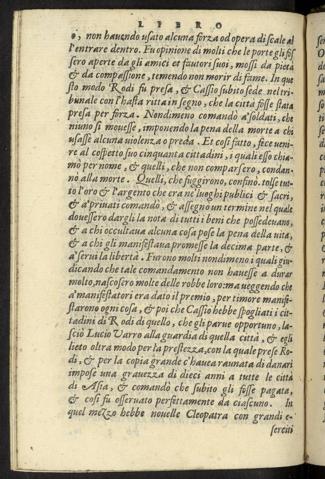 LIBRO
o, non hauendo usato alcuna forza od opera di scale al
l'entrare dentro. Fu opinione di molti che le porte gli fos
sero aperte da gli amici et fautori suoi, mossi da pieta
& da compassione, temendo non morir di fame. In que
sto modo Rodi fu presa, & Cassio subito sede nel tri=
bunale con l'hasta ritta in segno, che la città fosse stata
presa per forza. Nondimeno comandò a'soldati, che
niuno si mouesse, imponendo la pena della morte a chi
usasse alcuna uiolenza o preda. Et così fatto, fece ueni=
re al cospetto suo cinquanta cittadini, i quali esso chia=
mò per nome, & quelli, che non comparsero, condan=
nò alla morte. Quelli, che fuggirono, confinò. tolse tut=
to l'oro & l'argento che era ne luoghi publici & sacri,
& a'priuati comandò, & assegnò un termine nel quale
douessero dargli la nota di tutti i beni che possedeuano,
& a chi occultaua alcuna cosa pose la pena della uita,
& a chi gli manifestaua promesse la decima parte, &
a'serui la libertà. Furono molti nondimeno i quali giu=
dicando che tale comandamento non hauesse a durar
molto, nascosero molte delle robbe loro: ma ueggendo che
a'manifestatori era dato il premio, per timore manife=
starono ogni cosa, & poi che Cassio hebbe spogliati i cit=
tadini di Rodi di quello, che gli parue opportuno, la=
sciò Lucio Varro alla guardia di quella città, & egli
lieto oltra modo per la prestezza, con la quale prese Ro=
di, & per la copia grande c'hauea raunata di danari
impose una grauezza di dieci anni a tutte le città
di Asia, & comandò che subito gli fosse pagata,
& così fu osseruato perfettamente da ciascuno. In
quel mezzo hebbe nouelle Cleopatra con grandi e=
serciti